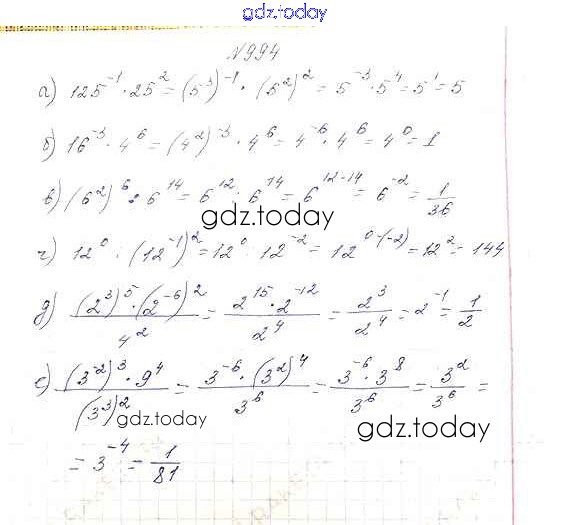 gdz.today
№994
а) 125⁻¹ · 25² = (5³)⁻¹ · (5²)² = 5⁻³ · 5⁴ = 5¹ = 5
б) 16⁻³ · 4⁶ = (4²)⁻³ · 4⁶ = 4⁻⁶ · 4⁶ = 4⁰ = 1
в) (6²)⁶ : 6¹⁴ = 6¹² : 6¹⁴ = 6¹²⁻¹⁴ = 6⁻² = 1/36
gdz.today
г) 12⁰ : (12⁻¹)² = 12⁰ : 12⁻² = 12⁰⁻⁽⁻²⁾ = 12² = 144
д) (2³)⁵ · (2⁻⁶)² / 4² = 2¹⁵ · 2⁻¹² / 2⁴ = 2³ / 2⁴ = 2⁻¹ = 1/2
е) (3⁻²)³ · 9⁴ / (3³)² = 3⁻⁶ · (3²)⁴ / 3⁶ = 3⁻⁶ · 3⁸ / 3⁶ = 3² / 3⁶ =
gdz.today gdz.today
= 3⁻⁴ = 1/81